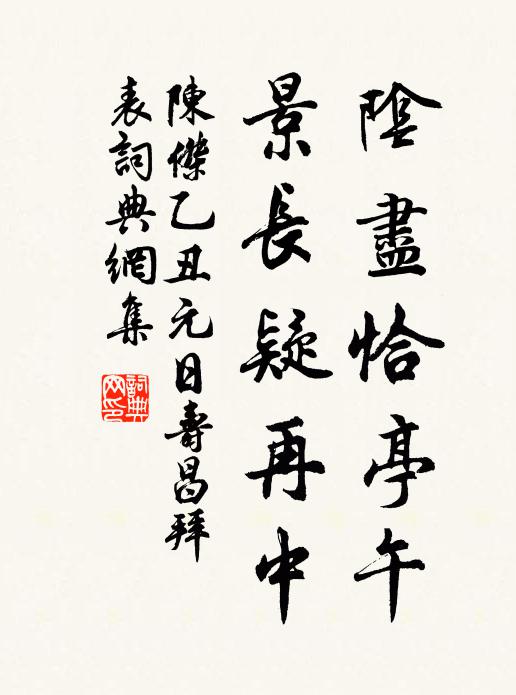 陰盡恰亭午
景長疑再中
陳傑乙丑元日壽昌拜
表詞典網集
詞典
网印